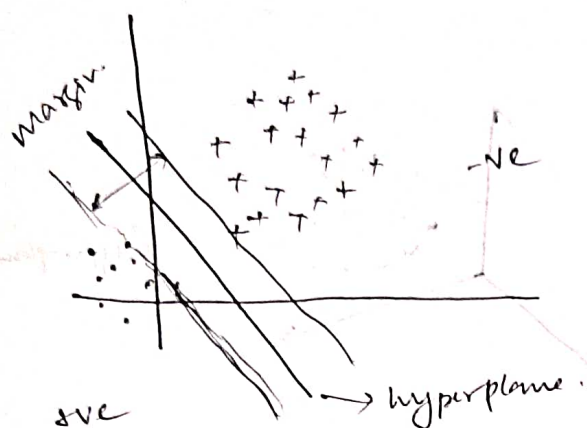 margin.
-ve
hyperplane.
+ve